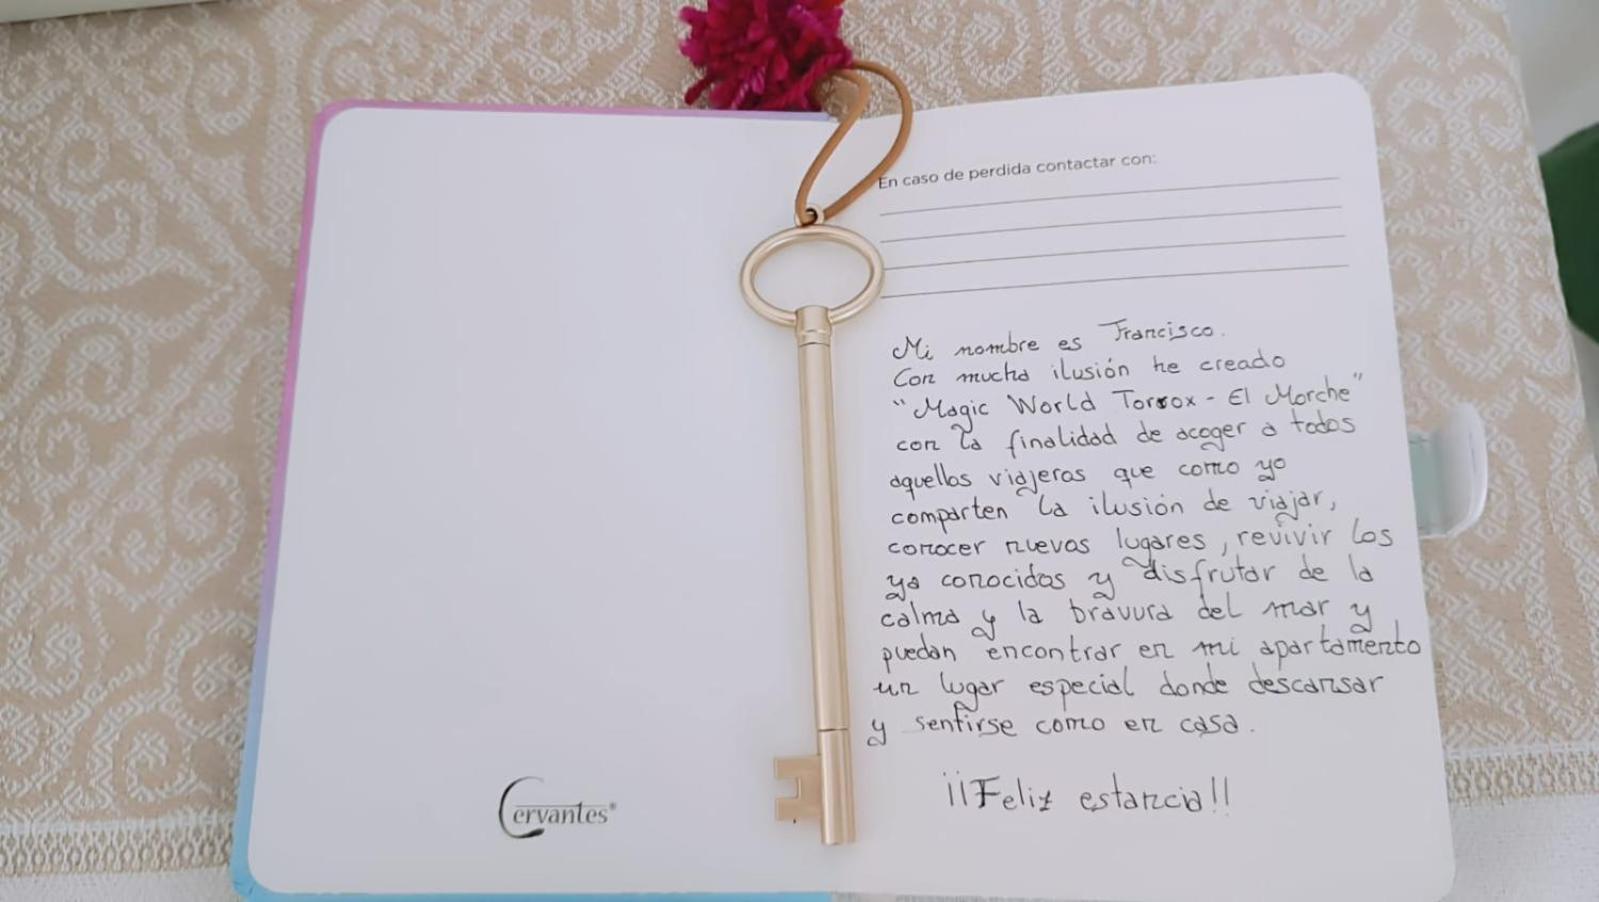 En caso de perdida contactar con:
Mi nombre es Francisco.
Con mucha ilusión he creado
"Magic World Torrox - El Morche"
con la finalidad de acoger a todos
aquellos viajeros que como yo
comparten la ilusión de viajar,
conocer nuevos lugares, revivir los
ya conocidos y disfrutar de la
calma y la bravura del mar y
puedan encontrar en mi apartamento
un lugar especial donde descansar
y sentirse como en casa.
¡¡Feliz estancia!!
Cervantes®